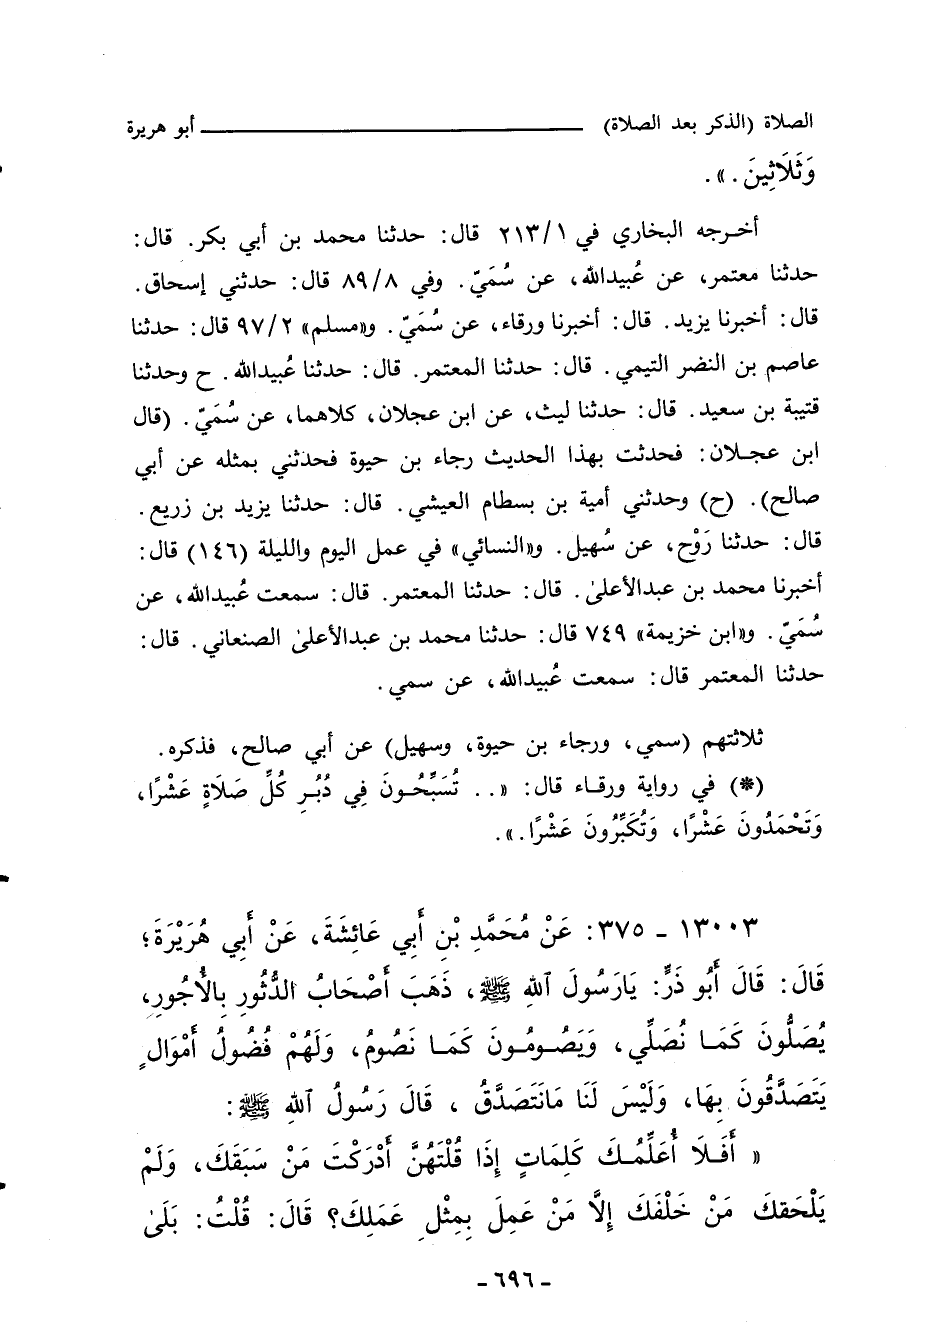 الصلاة (الذكر بعد الصلاة) ــــــــــــــــــــ أبو هريرة
وَثَلَاثِينَ . » .
أخـرجه البخاري في ٢١٣/١ قال: حدثنا محمد بن أبي بكر. قال:
حدثنا معتمر، عن عُبيدالله، عن سُمَيّ. وفي ٨٩/٨ قال: حدثني إسحاق.
قال: أخبرنا يزيد. قال: أخبرنا ورقاء، عن سُمَيّ. و«مسلم» ٩٧/٢ قال: حدثنا
عاصم بن النضر التيمي. قال: حدثنا المعتمر. قال: حدثنا عُبيدالله. ح وحدثنا
قتيبة بن سعيد. قال: حدثنا ليث، عن ابن عجلان، كلاهما، عن سُمَيّ. (قال
ابن عجـلان: فحدثت بهذا الحديث رجاء بن حيوة فحدثني بمثله عن أبي
صالح). (ح) وحدثني أمية بن بسطام العيشي. قال: حدثنا يزيد بن زريع.
قال: حدثنا رَوْح، عن سُهيل. و«النسائي» في عمل اليوم والليلة (١٤٦) قال:
أخبرنا محمد بن عبدالأعلىٰ. قال: حدثنا المعتمر. قال: سمعت عُبيدالله، عن
سُمَيّ. و«ابن خزيمة» ٧٤٩ قال: حدثنا محمد بن عبدالأعلىٰ الصنعاني. قال:
حدثنا المعتمر قال: سمعت عُبيدالله، عن سمي.
ثلاثتهم (سمي، ورجاء بن حيوة، وسهيل) عن أبي صالح، فذكره.
(*) في رواية ورقـاء قال: «.. تُسَبِّحُـونَ فِي دُبُـرِ كُلِّ صَلَاةٍ عَشْرًا،
وَتَحْمَدُونَ عَشْرًا، وَتُكَبِّرُونَ عَشْرًا.».
١٣٠٠٣ - ٣٧٥: عَنْ مُحَمَّدِ بْنِ أَبِي عَائِشَةَ، عَنْ أَبِي هُرَيْرَةَ؛
قَالَ: قَالَ أَبُو ذَرٍّ: يَارَسُولَ ٱللهِ ﷺ، ذَهَبَ أَصْحَابُ الدُّثُورِ بِالْأُجُورِ،
يُصَلُّونَ كَمَـا نُصَلِّي، وَيَصُومُـونَ كَمَـا نَصُومُ، وَلَهُمْ فُضُولُ أَمْوَالٍ
يَتَصَدَّقُونَ بِهَا، وَلَيْسَ لَنَا مَانَتَصَدَّقُ ، قَالَ رَسُولُ ٱللهِ ﷺ:
« أَفَـلَا أُعَلِّمُـكَ كَلِمَاتٍ إِذَا قُلْتَهُنَّ أَدْرَكْتَ مَنْ سَبَقَكَ، وَلَمْ
يَلْحَقكَ مَنْ خَلْفَكَ إِلَّا مَنْ عَمِلَ بِمِثْلِ عَمَلِكَ؟ قَالَ: قُلْتُ: بَلَىٰ
- ٦٩٦ -